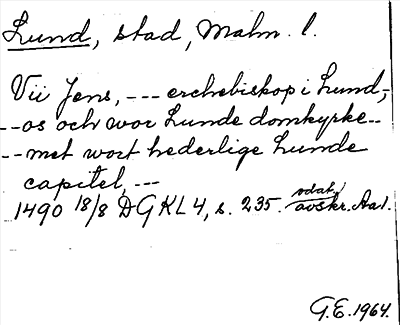 Lund, stad, Malm. l.
Vii Jens, --- erchebiskop i Lund,
--os och wor Lunde domkyrke--
--met wort hederlige Lunde
capitel, ---
1490 18/8 DGKL 4, s. 235. odat. avskr. Aa 1.
G.E. 1964.